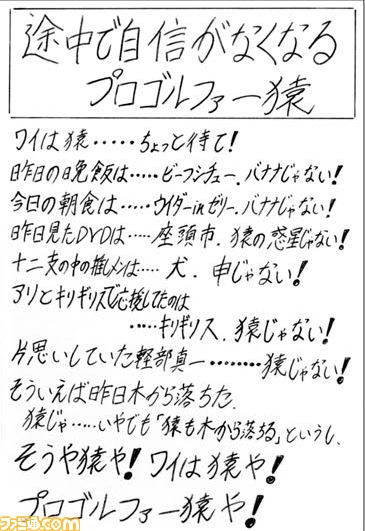 途中で自信がなくなる
プロゴルファー猿
ワイは猿・・・・・ちょっと待て!
昨日の晩飯は・・・・・ビーフシチュー。バナナじゃない!
今日の朝食は・・・・・ウイダーinゼリー。バナナじゃない!
昨日見たDVDは・・・・・座頭市。猿の惑星じゃない!
十二支の中の推しメンは・・・・犬。申じゃない!
アリとキリギリスで応援してたのは
・・・・・キリギリス。猿じゃない!
片思いしていた軽部真一・・・・・・・・猿じゃない!
そういえば昨日木から落ちた。
猿じゃ・・・・・いやでも「猿も木から落ちる」というし、
そうや猿や!ワイは猿や!
プロゴルファー猿や!
ファミ通.com